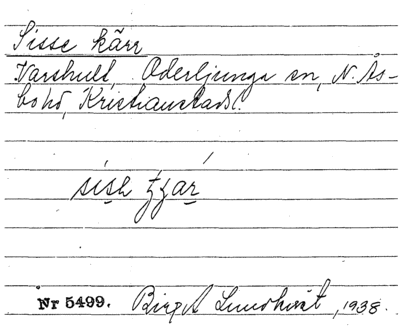 Sisse kärr
Varshult, Oderljunga sn, N. Ås-
bo hd, Kristianstads l.
Nr 5499. Birgit Lundkvist, 1938.